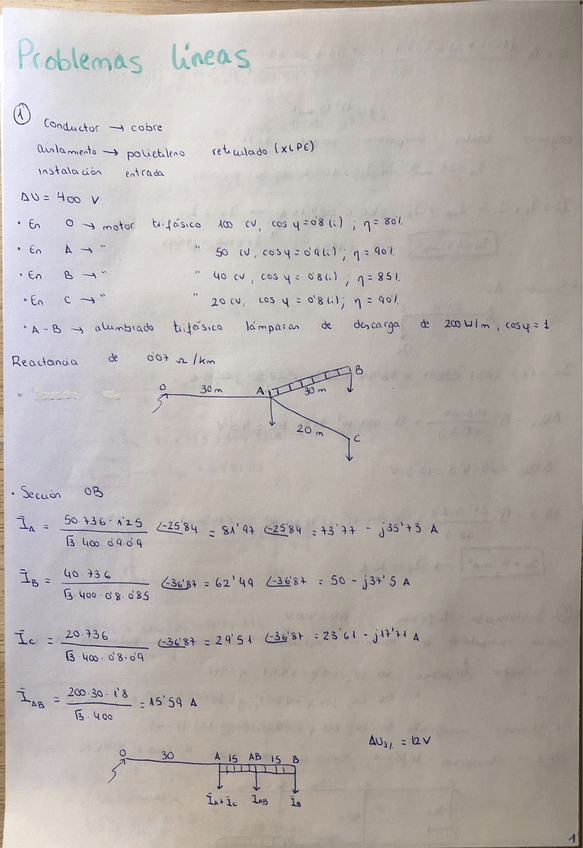 Problemas líneas
① Conductor → cobre
aislamiento → polietileno reticulado (XLPE)
instalación entrada
ΔU = 400 V
• En O → motor trifásico 100 CV, cos φ = 0'8 (i) ; η = 80%
• En A → " " 50 CV, cos φ = 0'9 (i) ; η = 90%
• En B → " " 40 CV, cos φ = 0'8 (i) ; η = 85%
• En C → " " 20 CV, cos φ = 0'8 (i) ; η = 90%
• A-B → alumbrado trifásico lámparas de descarga de 200 W/m, cos φ = 1
Reactancia de 0'07 Ω/km
O 30 m A 30 m B
20 m C
• Sección OB
I̅A = 50·736·1'25 / √3·400·0'9·0'9 ∠-25'84 = 81'97 ∠-25'84 = 73'77 - j35'73 A
I̅B = 40·736 / √3·400·0'8·0'85 ∠-36'87 = 62'49 ∠-36'87 = 50 - j37'5 A
I̅C = 20·736 / √3·400·0'8·0'9 ∠-36'87 = 29'51 ∠-36'87 = 23'61 - j17'71 A
I̅AB = 200·30·1'8 / √3·400 = 15'59 A
ΔU3% = 12 V
O 30 A 15 AB 15 B
I̅A+I̅C I̅AB I̅B
1